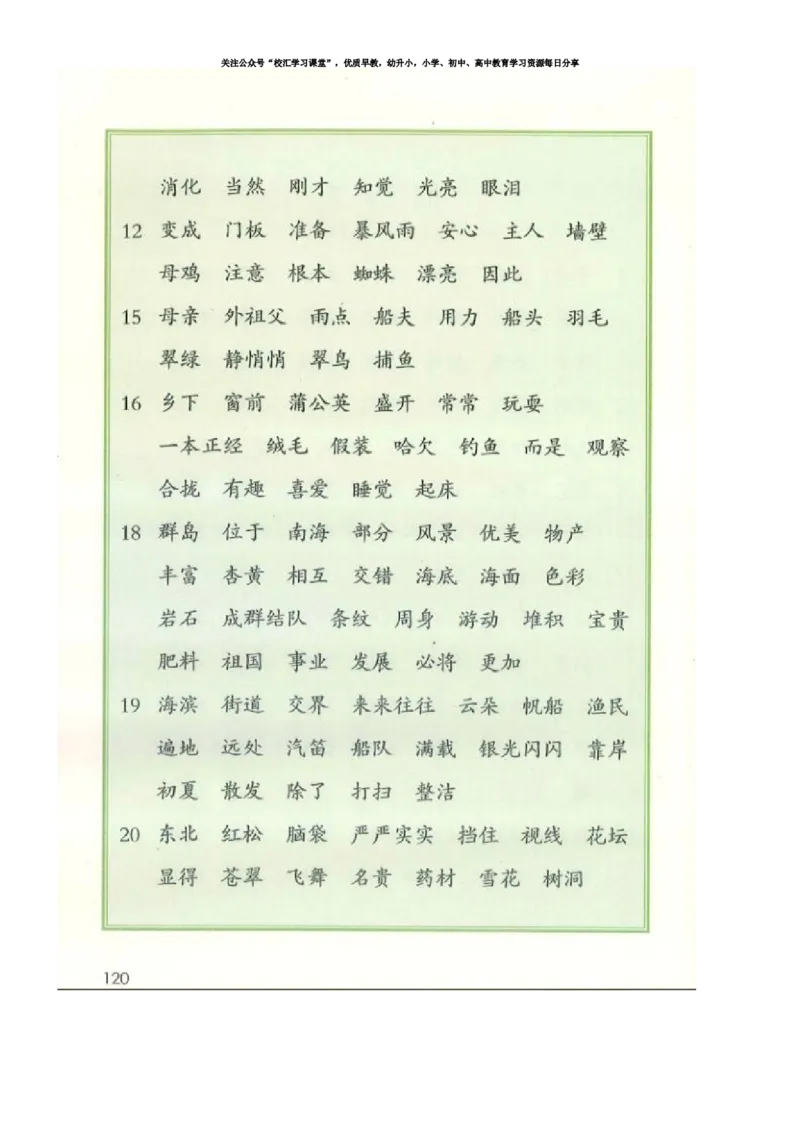 关注公众号“校汇学习课堂”，优质早教，幼升小，小学、初中、高中教育学习资源每日分享
消化 当然 刚才 知觉 光亮 眼泪
12 变成 门板 准备 暴风雨 安心 主人 墙壁
母鸡 注意 根本 蜘蛛 漂亮 因此
15 母亲 外祖父 雨点 船夫 用力 船头 羽毛
翠绿 静悄悄 翠鸟 捕鱼
16 乡下 窗前 蒲公英 盛开 常常 玩耍
一本正经 绒毛 假装 哈欠 钓鱼 而是 观察
合拢 有趣 喜爱 睡觉 起床
18 群岛 位于 南海 部分 风景 优美 物产
丰富 杏黄 相互 交错 海底 海面 色彩
岩石 成群结队 条纹 周身 游动 堆积 宝贵
肥料 祖国 事业 发展 必将 更加
19 海滨 街道 交界 来来往往 云朵 帆船 渔民
遍地 远处 汽笛 船队 满载 银光闪闪 靠岸
初夏 散发 除了 打扫 整洁
20 东北 红松 脑袋 严严实实 挡住 视线 花坛
显得 苍翠 飞舞 名贵 药材 雪花 树洞
120